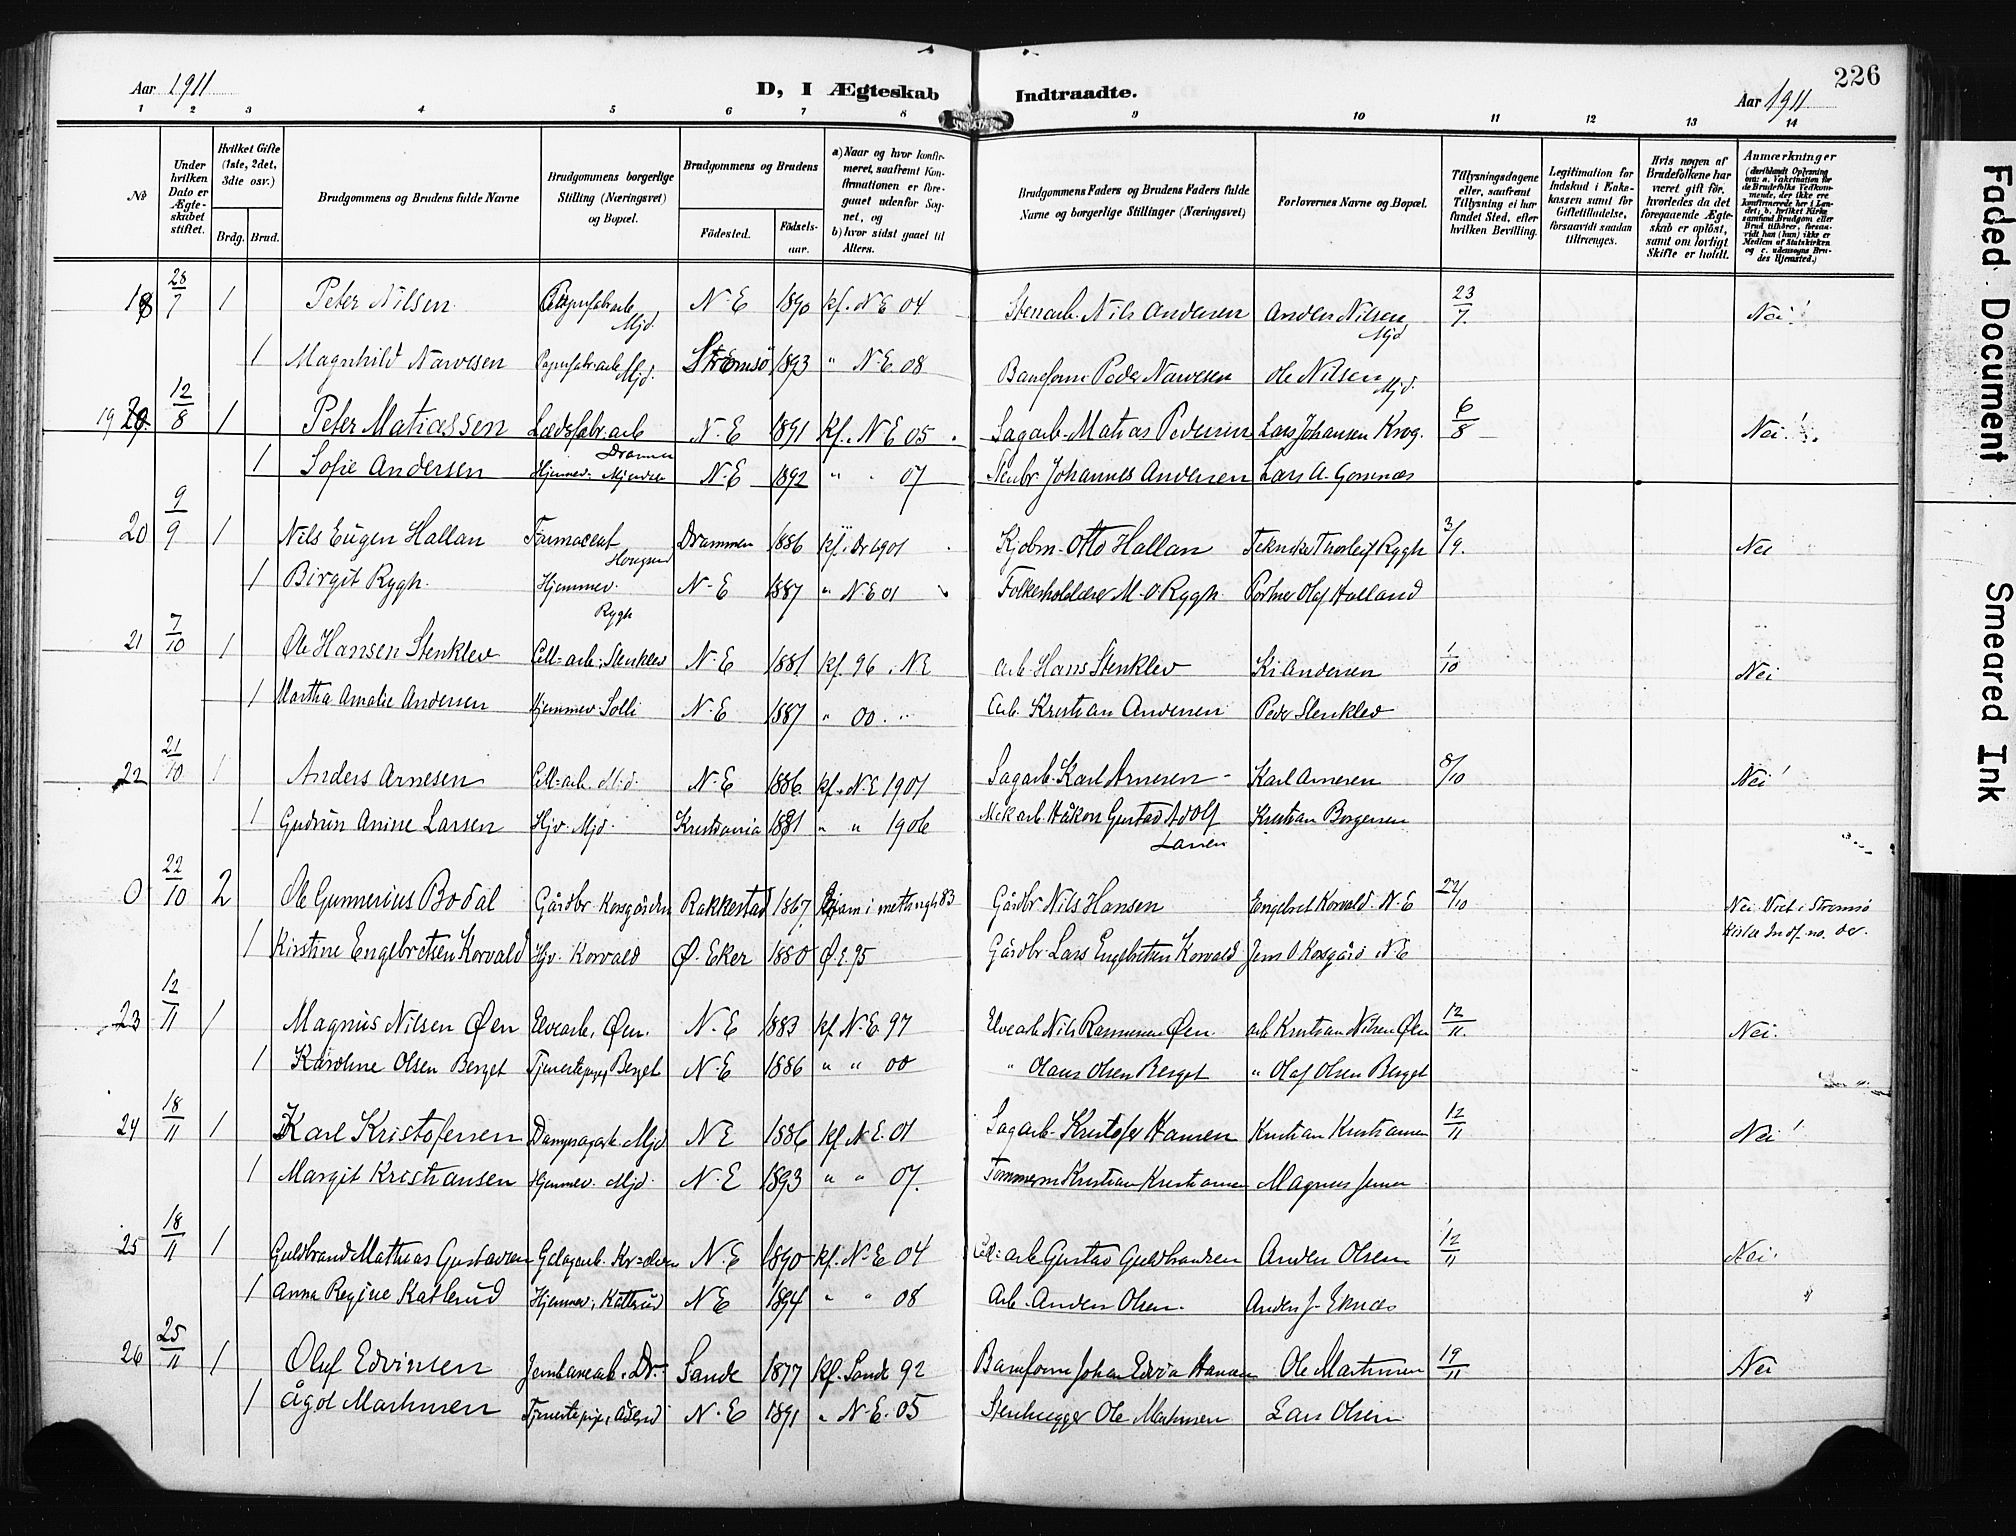 Aar 1911
D, I Ægteskab Indtraadte.
Aar 1911
226
1 2 3 4 5 6 7 8 9 10 11 12 13 14
№
Under hvilken Dato er Ægteskabet stiftet.
Hvilket Gifte (1ste, 2det, 3die osv.)
Brdg. Brud.
Brudgommens og Brudens fulde Navne
Brudgommens borgerlige Stilling (Næringsvei) og Bopæl.
Brudgommens og Brudens
Fødested.
Fødselsaar.
a) Naar og hvor konfirmeret, saafremt Konfirmationen er foregaaet udenfor Sognet, og b) hvor sidst gaaet til Alters.
Brudgommens Faders og Brudens Faders fulde Navne og borgerlige Stillinger (Næringsvei)
Forlovernes Navne og Bopæl.
Tillysningsdagene eller, saafremt Tillysning ei har fundet Sted, efter hvilken Bevilling.
Legitimation for Indskud i Enkekassen samt for Giftetilladelse, forsaavidt saadan tiltrænges.
Hvis nogen af Brudefolkene har været gift før, hvorledes da det foregaaende Ægteskab er opløst, samt om lovligt Skifte er holdt.
Anmærkninger (deriblandt Oplysning om: a. Vakcination for de Brudefolks Vedkommende, der ikke ere konfirmerede her i Landet; b. hvilket Kirkesamfund Brudgom eller Brud tilhører, forsaavidt han (hun) ikke er Medlem af Statskirken og c. udensogns Brudes Hjemsted.)
18 28/7 1 Peter Nilsen Papirfabrarb Mjd. N-E 1890 kf. N E 04 Stenarb. Nils Andersen Anders Nilsen Mjd 23/7. Nei!
1 Magnhild Narvesen Papirfabrarb Mjd. Strømsø 1893 " N-E 08 Baneform Peder Narvesen Ole Nilsen Mjd.
19 12/8 1 Peter Matiassen Lædfabr.arb Drammen N-E 1891 kf. N E 05. Sagarb. Matias Pedersen Lars Johansen Krog. 6/8 Nei!
1 Sofie Andersen Hjemmev. Mjøndalen N-E 1892 " " 07 Stenbr. Johannes Andersen Lars A. Gomnæs
20 9/9 1 Nils Eugen Hallan Farmaceut Hougsund Drammen 1886 kf. i Dr 1901 Kjøbm. Otto Hallan Tekniker Thorleif Rygh 3/9. Nei
1 Birgit Rygh. Hjemmev. Rygh N-E 1887 " N.E 01 Folkeskolelærer M. O. Rygh Portner Olaf Halland
21 7/10 1 Ole Hansen Stenklev Cell-arb. Stenklev N.E 1881 kf. 96. N E arb. Hans Stenklev Kr Andersen 1/10 Nei
1 Martha Amalie Andersen Hjemmev. Solli N-E 1887 " 00. " Arb. Kristian Andersen Peder Stenklev
22 21/10 1 Anders Arnesen Cell-arb. Mjd. N.E 1886 kf. N.E 1901 Sagarb. Karl Arnesen Karl Arnesen 8/10 Nei!
1 Gudrun Anine Larsen Hjv. Mjd. Kristiania 1891 " " 1906 Mek arb. Håkon Gustav Adolf Larsen Kristian Borgersen
0 22/10 2 Ole Gunnerius Bodal Gårdbr Korsgården Rakkestad 1867 83 Gårdbr Nils Hansen Engebret Korvald. N-E 22/10 Nei Viet i Strømsø Kirke
1 Kirstine Engebretsen Korvald Hjv. Korvald Ø. Eker 1880 Ø.E. 95 Gårdbr. Lars Engebretsen Korvald Jens O Korsgård N E
23 12/11 1 Magnus Nilsen Øen Elvearb. Øen. N-E 1883 kf. N-E. 97 Elvearb Nils Rasmussen Øen. arb Kristian Nilsen Øen 12/11. Nei.
1 Karoline Olsen Berget Tjenestepige Berget N-E 1886 " " 00 " Olaus Olsen Berget " Olaf Olsen Berget
24 18/11 1 Karl Kristofersen Dampsagarb. Mjd N E 1886 kf. N-E. 01 Sagarb. Kristofer Hansen Kristian Kristiansen 12/11 Nei!
1 Margit Kristiansen Hjemmev. Mjd. N-E 1893 " " 07. Tømmerm Kristian Kristiansen Magnus Jensen
25 18/11 1 Guldbrand Mathias Gustavsen N.E 1890 kf. N-E 04 Cell-arb Gustav Guldbrandsen Anders Olsen 12/11 Nei.
1 Anna Regine Katterud Hjemmev. Katterud N E 1894 " " 08 Arb. Anders Olsen. Anders J. Eknæs "
26 25/11 1 Oluf Edvinsen Jernbanearb. Dr. Sande 1877 kf. Sande 92 Baneform Johan Edvin Hansen Ole Martinsen 19/11 Nei
1 Ågot Martinsen Tjenestepige, N.E 1891 " N.E. 05 Stenhugger Ole Martinsen Lars Olsen
Faded Document
Smeared Ink